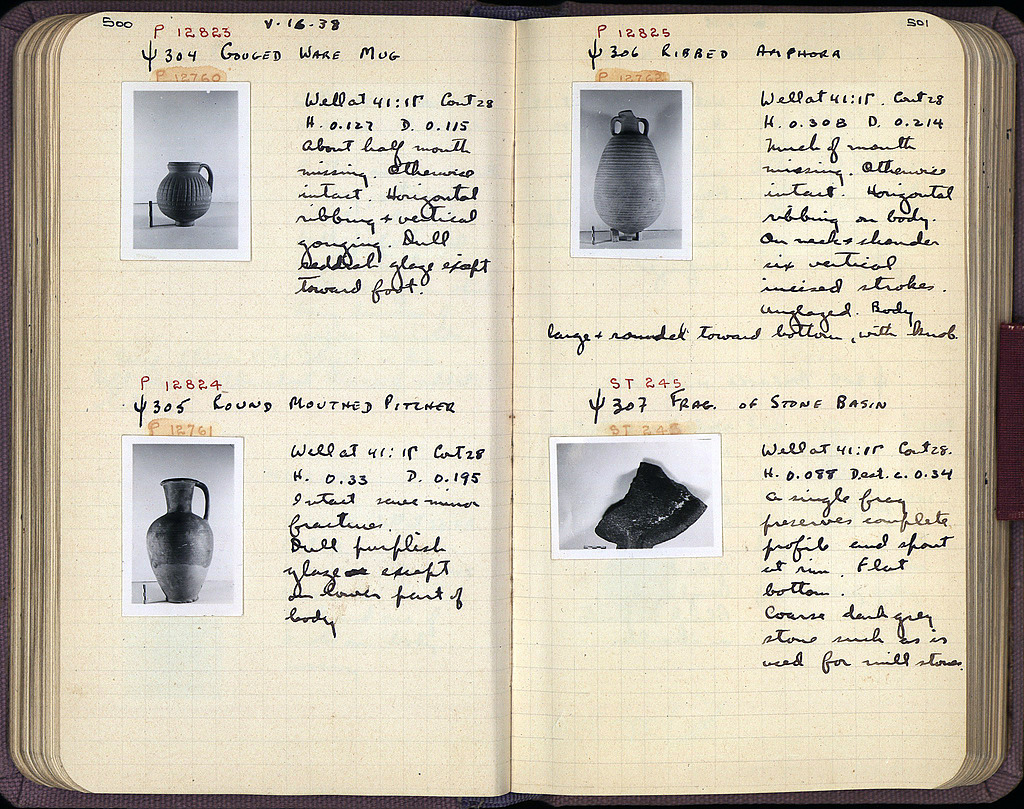 500
V-16-38
P 12823
Ψ 304 GOUGED WARE MUG
P 12760
Well at 41:ΙΓ Cont 28
H. 0.127 D. 0.115
About half mouth
missing. Otherwise
intact. Horizontal
ribbing + vertical
gouging. Dull
reddish glaze except
toward foot.
P 12824
Ψ 305 ROUND MOUTHED PITCHER
P 12761
Well at 41:ΙΓ Cont 28
H. 0.33 D. 0.195
Intact save minor
fractures.
Dull purplish
glaze except
on lower part of
body
501
P 12825
Ψ 306 RIBBED AMPHORA
P 12762
Well at 41:ΙΓ. Cont 28
H. 0.308 D. 0.214
Much of mouth
missing. Otherwise
intact. Horizontal
ribbing on body.
On neck + shoulder
six vertical
incised strokes.
Unglazed. Body
large + rounded toward bottom, with knob.
ST 245
Ψ 307 FRAG. OF STONE BASIN
ST 243
Well at 41:ΙΓ Cont 28.
H. 0.088 Dest. c. 0.34
A single frag
preserves complete
profile and spout
at rim. Flat
bottom.
Coarse dark grey
stone such as is
used for mill stones.